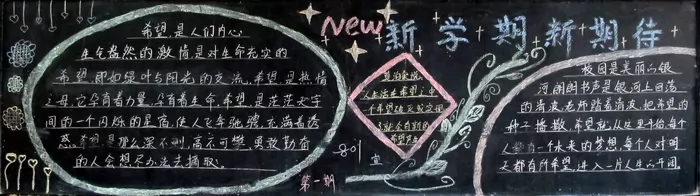 希望,是人们内心
生命盎然的激情是对生命充实的
希望,即如绿叶与阳光的交流,希望是热情
之母,它孕育着力量,孕育着生命,希望是茫茫太宇
间的一个闪烁的星宿,使人飞奔驰骋,充满着诱
惑,希望是那么深不测,高不可攀,勇敢勤奋
的人会想尽办法去摘取。
New 新学期新期待
人生活在希望之中
一个希望
宣
第一期
校园是美丽的银
河,朗朗书声是银河上回荡
的清波,老师踏着清波,把希望的
种子播撒,希望就从这里开始,每个
人都有一个未来的梦想,每个人对明
天都有所希望,进入一片人生的开阔